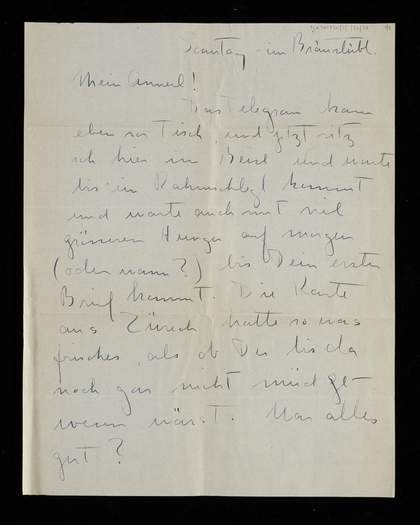 Sonntag - im Bräustübl.
Mein Annerl!
Das Telegram kam
eben vor Tisch, und jetzt sitz
ich hier im Beisl und warte
bis ein Rahmschlegl kommt
und warte auch mit viel
grösserem Hunger auf morgen
(oder wann?) bis Dein erster
Brief kommt. Die Karte
aus Zürich hatte so was
frisches, als ob Du bis da
noch gar nicht müd ge-
wesen wärst. War alles
gut?